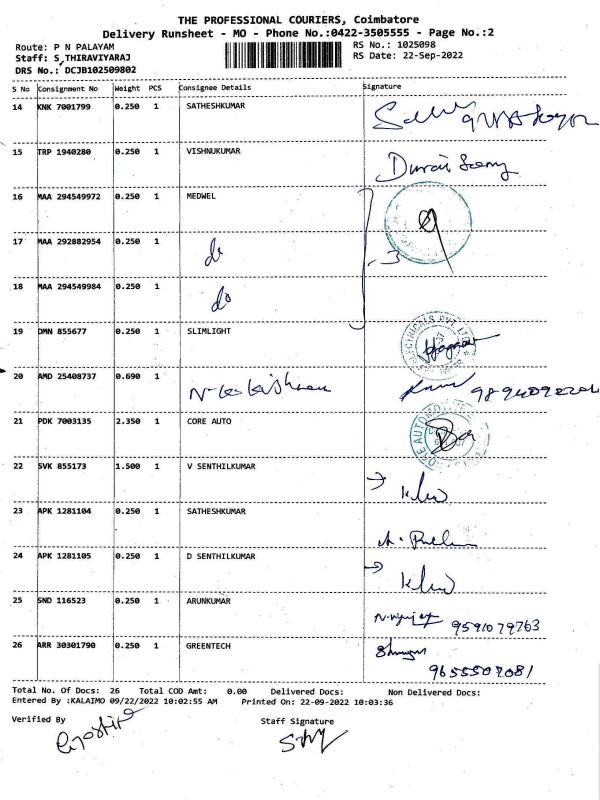 THE PROFESSIONAL COURIERS, Coimbatore
Delivery Runsheet - MO - Phone No.:0422-3505555 - Page No.:2
Route: P N PALAYAM
RS No.: 1025098
Staff: S THIRAVIYARAJ
RS Date: 22-Sep-2022
DRS No.: DCJB102509802
S No Consignment No Weight PCS Consignee Details Signature
14 KNK 7001799 0.250 1 SATHESHKUMAR
15 TRP 1940280 0.250 1 VISHNUKUMAR
16 MAA 294549972 0.250 1 MEDWEL
17 MAA 292882954 0.250 1 do 3
18 MAA 294549984 0.250 1 do
19 DMN 855677 0.250 1 SLIMLIGHT
20 AMD 25408737 0.690 1
21 PDK 7003135 2.350 1 CORE AUTO
22 SVK 855173 1.500 1 V SENTHILKUMAR
23 APK 1281104 0.250 1 SATHESHKUMAR
24 APK 1281105 0.250 1 D SENTHILKUMAR
25 SND 116523 0.250 1 ARUNKUMAR 9591079763
26 ARR 30301790 0.250 1 GREENTECH
9655507081
Total No. Of Docs: 26 Total COD Amt: 0.00 Delivered Docs: Non Delivered Docs:
Entered By :KALAIMO 09/22/2022 10:02:55 AM Printed On: 22-09-2022 10:03:36
Verified By Staff Signature